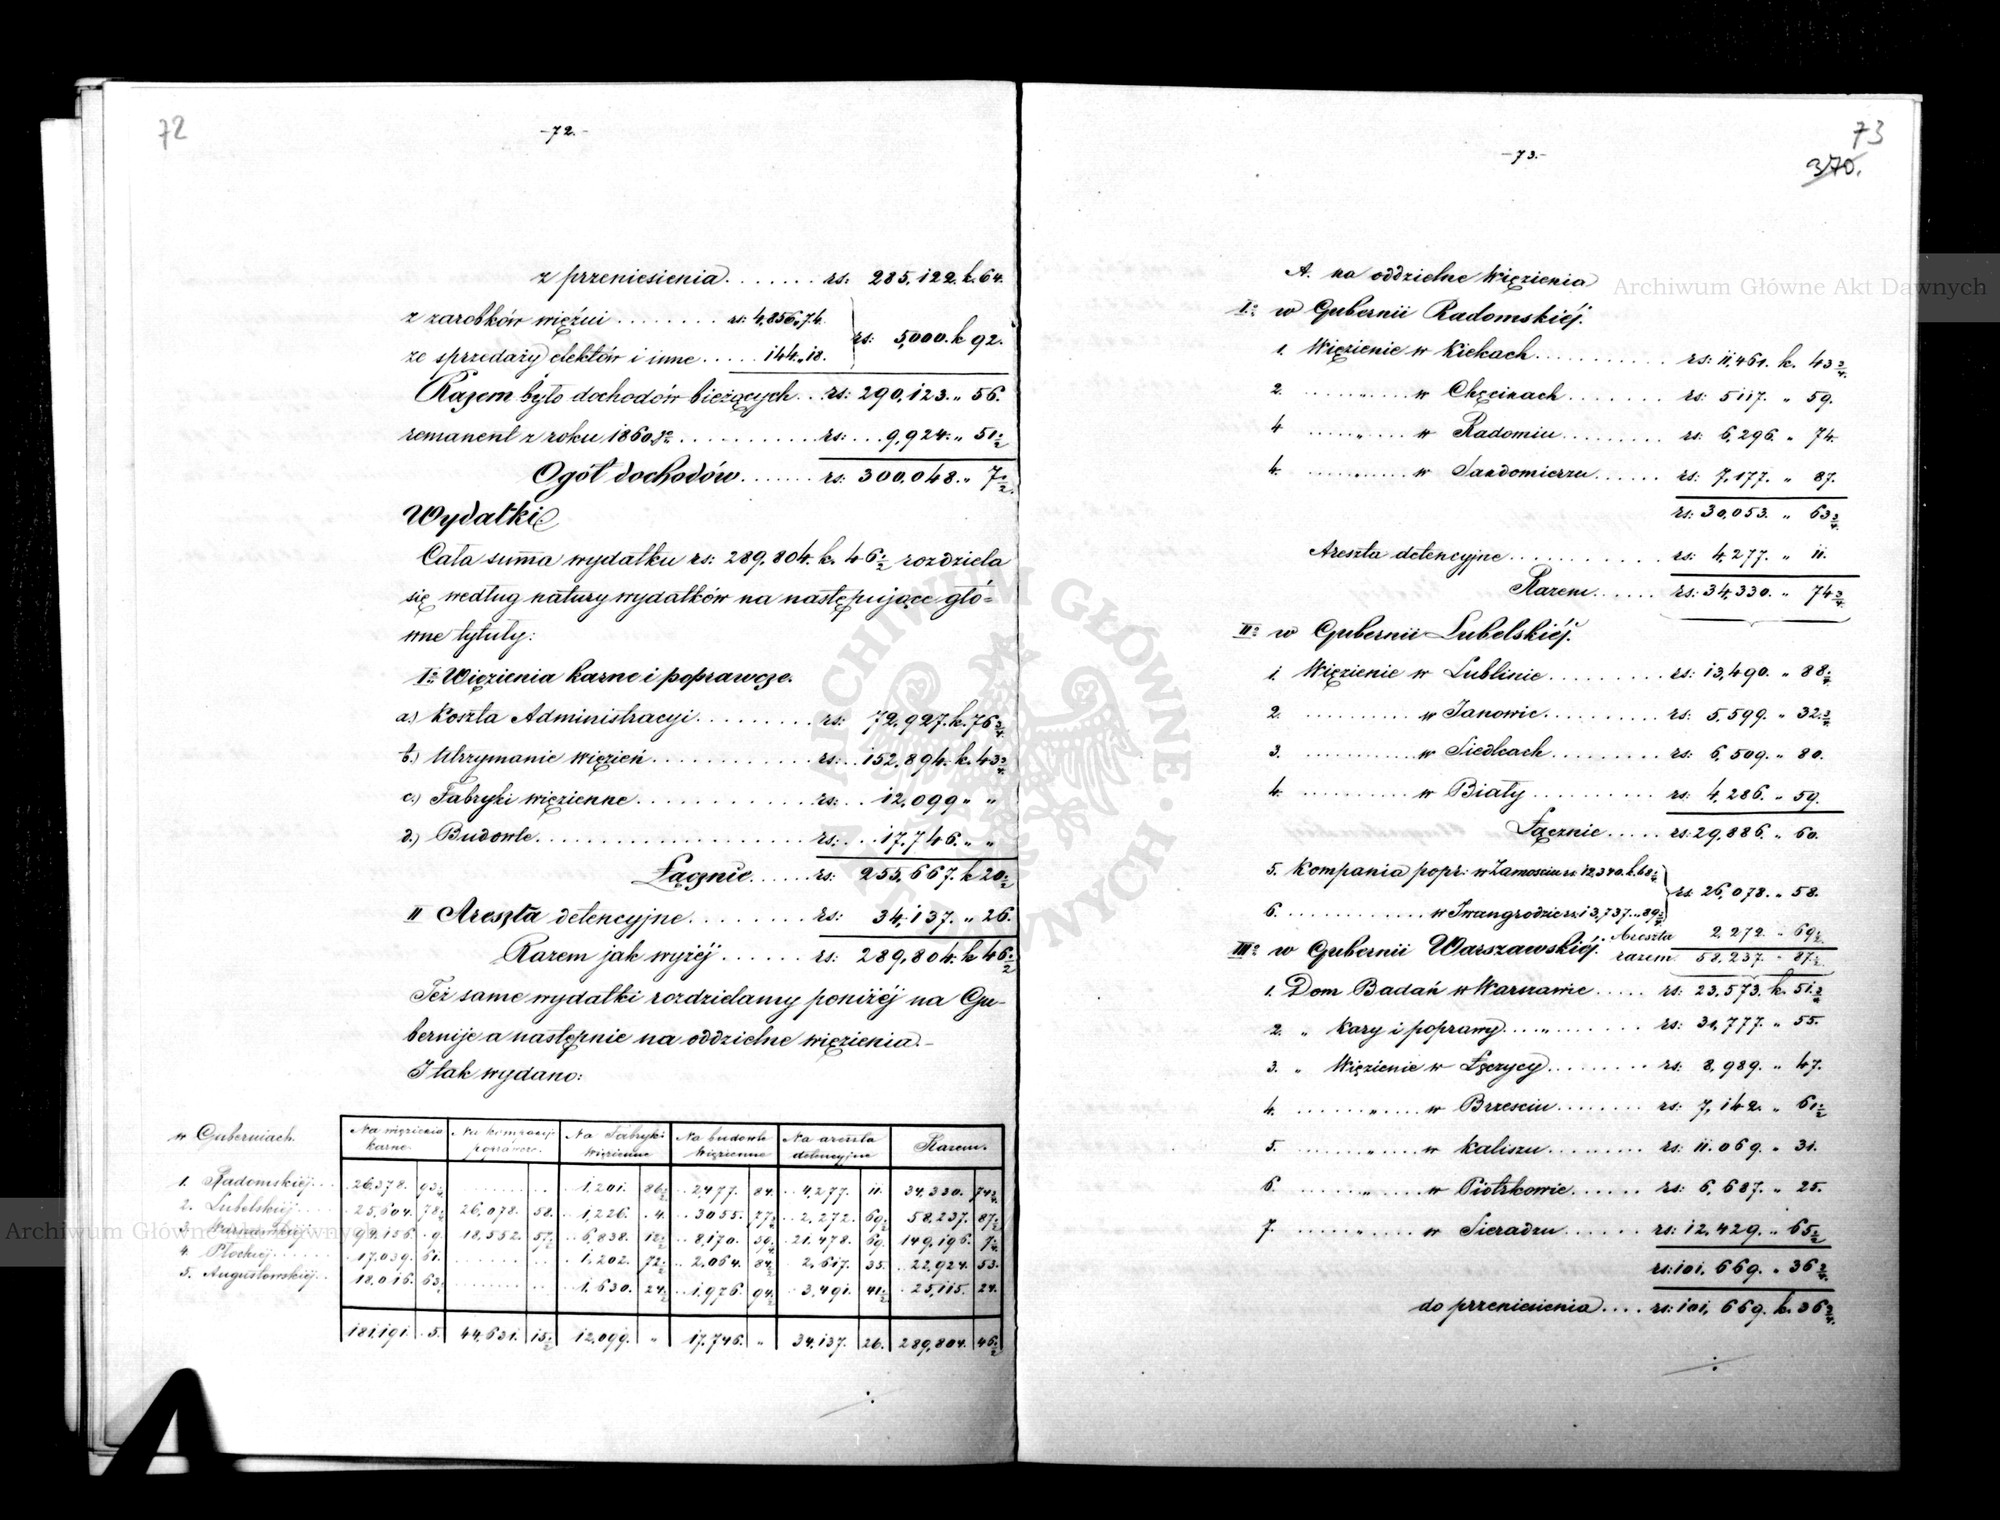 72
-72.-
z przeniesienia . . . . . . . rs: 285,122. k. 64.
z zarobków więźni . . . . . . . . rs: 4,856„74.
rs: 5,000. k 92.
ze sprzedaży efektów i inne . . . . . 144„18.
Razem było dochodów bieżących . . rs: 290,123. „ 56.
remanent z roku 1860go . . . . . . . . . . . rs: . . . 9,924. „ 51 1/2
Ogół dochodów . . . . . . . rs: 300,048. „ 7 1/2.
Wydatki
Cała summa wydatku rs: 289,804. k. 46 1/2 rozdziela
się według natury wydatków na następujące głó=
wne tytuły:
Io Więzienia karne i poprawcze.
a.) Koszta Administracyi . . . . . . . . . rs: 72,927. k. 76 3/4
b.) Utrzymanie Więzień . . . . . . . . . . . . rs: . . 152,894. k. 43 3/4
c.) Fabryki więzienne . . . . . . . . . . . . . rs: . . 12,099 „ „
d.) Budowle . . . . . . . . . . . . . . . . . . . . rs: . . . 17,746. „ „
Łącznie . . . . . rs: 255,667. k 20 1/2
II Areszta detencyjne . . . . . . . . rs: 34,137. „ 26.
Razem jak wyżéj . . . . . . rs: 289,804. k 46 1/2
Też same wydatki rozdzielamy poniżéj na Gu-
bernije a następnie na oddzielne więzienia.-
I tak wydano:
w Guberniach. Na więzienia karne. Na kompanije poprawcze. Na Fabryki Więzienne Na budowle Więzienne Na areszta detencyjne Razem.
1. Radomskiéj . . . 26,378. 93 3/4 . . . . . . . . 1,201. 86 1/2 . . 2477. 84. . . 4,277. 11. 34,330. 74 3/4
2. Lubelskiéj . . . . 25,604. 78 1/2 26,078. 58. . 1,226. . 4. . . 3055. 77 1/2 . . 2,272. 69 1/2 58,237. 87 1/2
3. Warszawskiéj . . 94,156. . 9. 18,552. 57 1/2 . . 6,838. 12 1/2 . . 8,170. 59 1/2 . . 21,478. 69. 149,196. 7 1/4
4. Płockiéj . . . . . . 17,039. 61. . . . . . . . . 1,202. 72 1/2 . . 2,064. 84 1/2 . 2,617. 35. . . 22,924. 53.
5. Augustowskiéj . . 18,016. 63 3/4 . . . . . . . . 1,630. 24 1/2 . . 1,976. 94 1/2 . . 3,491. 41 1/2 . 25,115. 24.
181,191. . 5. 44,631. 15 1/2 12,099. „ 17,746. „ 34,137. 26. 289,804. 46 1/2
73
-73.-
370.
A. na oddzielne Więzienia
Io w Gubernii Radomskiéj.
1. Więzienie w Kielcach . . . . . . . . . . . rs: 11,461. k. 43 3/4.
2. . . . . . . „ . . . w Chęcinach . . . . . . . . rs: 5117. „ 59.
4 . . . . . „ . . . . w Radomiu . . . . . . . . . rs: 6,296. „ 74.
4. . . . . . . „ . . . w Sandomierzu . . . . . . rs: 7,177. „ 87.
rs: 30,053. „ 63 3/4.
Areszta detencyjne . . . . . . . . . . . . . rs: 4,277. „ 11.
Razem . . . . . rs: 34,330. „ 74 3/4
IIo w Gubernii Lubelskiéj.
1. Więzienie w Lublinie . . . . . . . . . . rs: 13,490. „ 88 1/4
2. . . . . . . . . . . . w Janowie . . . . . . . . . . rs: 5,599. „ 32. 3/4
3. . . . . . . . . . . . w Siedlcach . . . . . . . . . rs: 6,509. „ 80.
4. . . . . . . . . . . . w Biały . . . . . . . . . . . . rs: 4,286. „ 59.
Łącznie . . . . . rs: 29,886. „ 60.
5. Kompania popr: w Zamościu rs: 12,340. k. 68 1/2
rs: 26,078. „ 58.
6. . . . . . . . . . . . . w Iwangrodzie rs: 13,737. „ 89 1/2
Areszta 2,272. „ 69 1/2
IIIo w Gubernii Warszawskiéj. razem 58,237. „ 87 1/2
1. Dom Badań w Warszawie . . . . . rs: 23,573. k. 51 3/4
2. „ Kary i poprawy . . . „ . . . . . . . . rs: 31,777. „ 55.
3. „ Więzienie w Łęczycy . . . . . . . . . rs: 8,989. „ 47.
4. . . . . . . . „ . . . . w Brześciu . . . . . . . . rs: 7,142. „ 61 1/2
5. . . . . . . . „ . . . . w Kaliszu . . . . . . . . . rs: 11.069. „ 31.
6. . . . . . . . „ . . . . w Piotrkowie . . . . . . . rs: 6,687. „ 25.
7. . . . . . . . „ . . . . w Sieradzu . . . . . . . . rs: 12,429. „ 65 1/2
rs: 101,669. „ 36 3/4
do przeniesienia . . . . rs: 101,669. k. 36 3/4.
Archiwum Główne Akt Dawnych
Archiwum Główne Akt Dawnych
ARCHIWUM GŁÓWNE AKT DAWNYCH